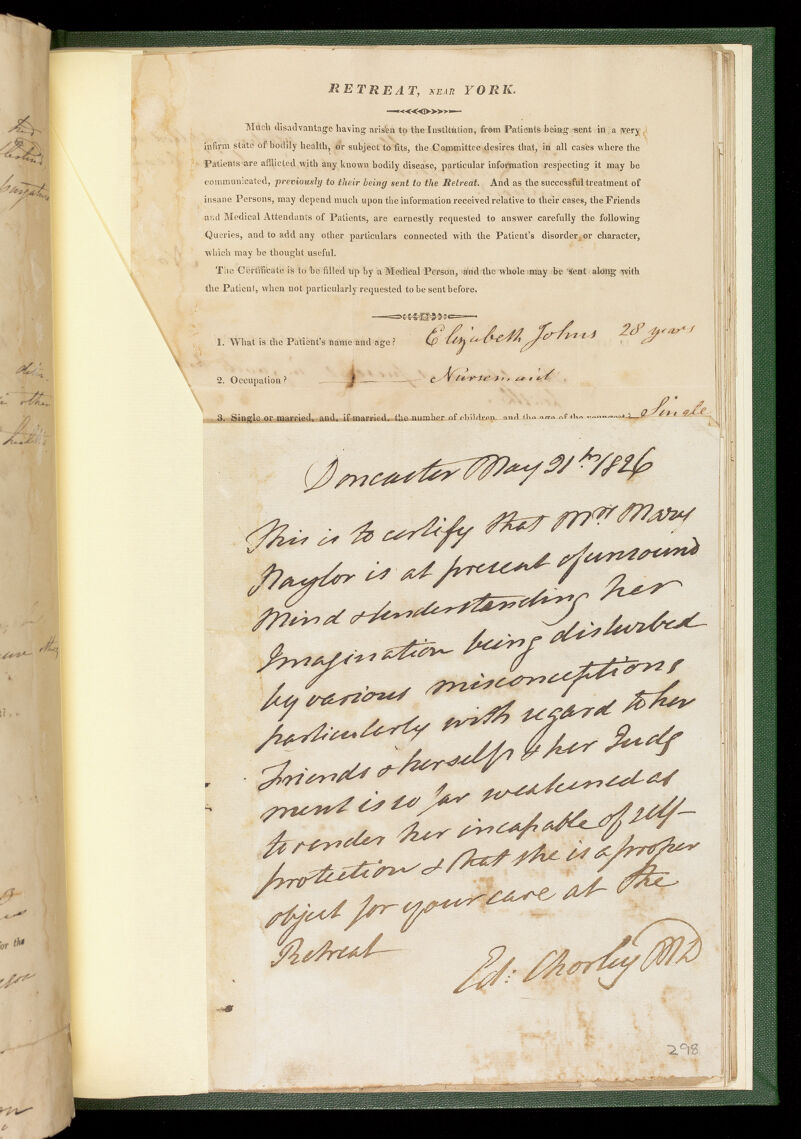 RETREAT, NEAR YORK.
Much disadvantage having arisen to the Institution, from Patients being sent in a very
infirm state of bodily health, or subject to fits, the Committee desires that, in all cases where the
Patients are afflicted with any known bodily disease, particular information respecting it may be
communicated, previously to their being sent to the Retreat. And as the successful treatment of
insane Persons, may depend much upon the information received relative to their cases, the Friends
and Medical Attendants of Patients, are earnestly requested to answer carefully the following
Queries, and to add any other particulars connected with the Patient's disorder or character,
which may be thought useful.
The Certificate is to be filled up by a Medical Person, and the whole may be sent along with
the Patient, when not particularly requested to be sent before.
1. What is the Patient's name and age? Elizabeth Johns 28 years
2. Occupation? Nursemaid
3. Single or married, and, if married, the number of children, and the age of the youngest? Single
Doncaster May 21st 1826
This is to certify that Mrs Mary
Naylor is at present of unsound
Mind & Understanding her
Imagination being disturbed
by various misconceptions
particularly with regard to her
Friends & herself & her Judg
ment is so far weakened as
to render her incapable of self-
protection & that she is a proper
object for your care at the
Retreat
Ed: Chorley MD
298
for the